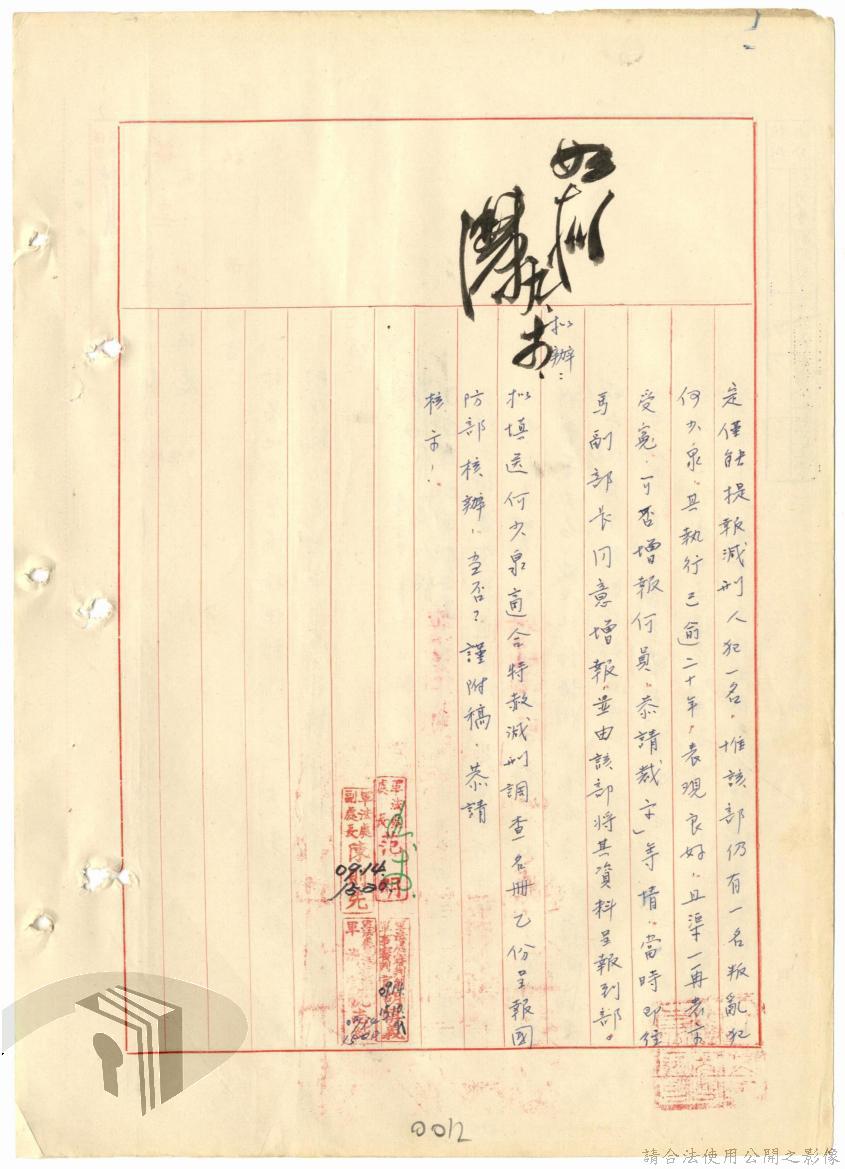 如擬
定僅能提報減刑人犯一名,惟該部仍有一名叛亂犯
何少泉,其執行已逾二十年,表現良好,且渠一再表示
受冤,可否增報何員,恭請裁示」等情,當時即經
馬副部長同意增報,並由該部將其資料呈報到部。
拟辦:
拟填送何少泉適合特赦減刑調查名冊乙份呈報國
防部核辦,當否?謹附稿,恭請
核示!
軍法處
處長范明
軍法處
副處長陳
0914
1500
0914
0012
請合法使用公開之影像